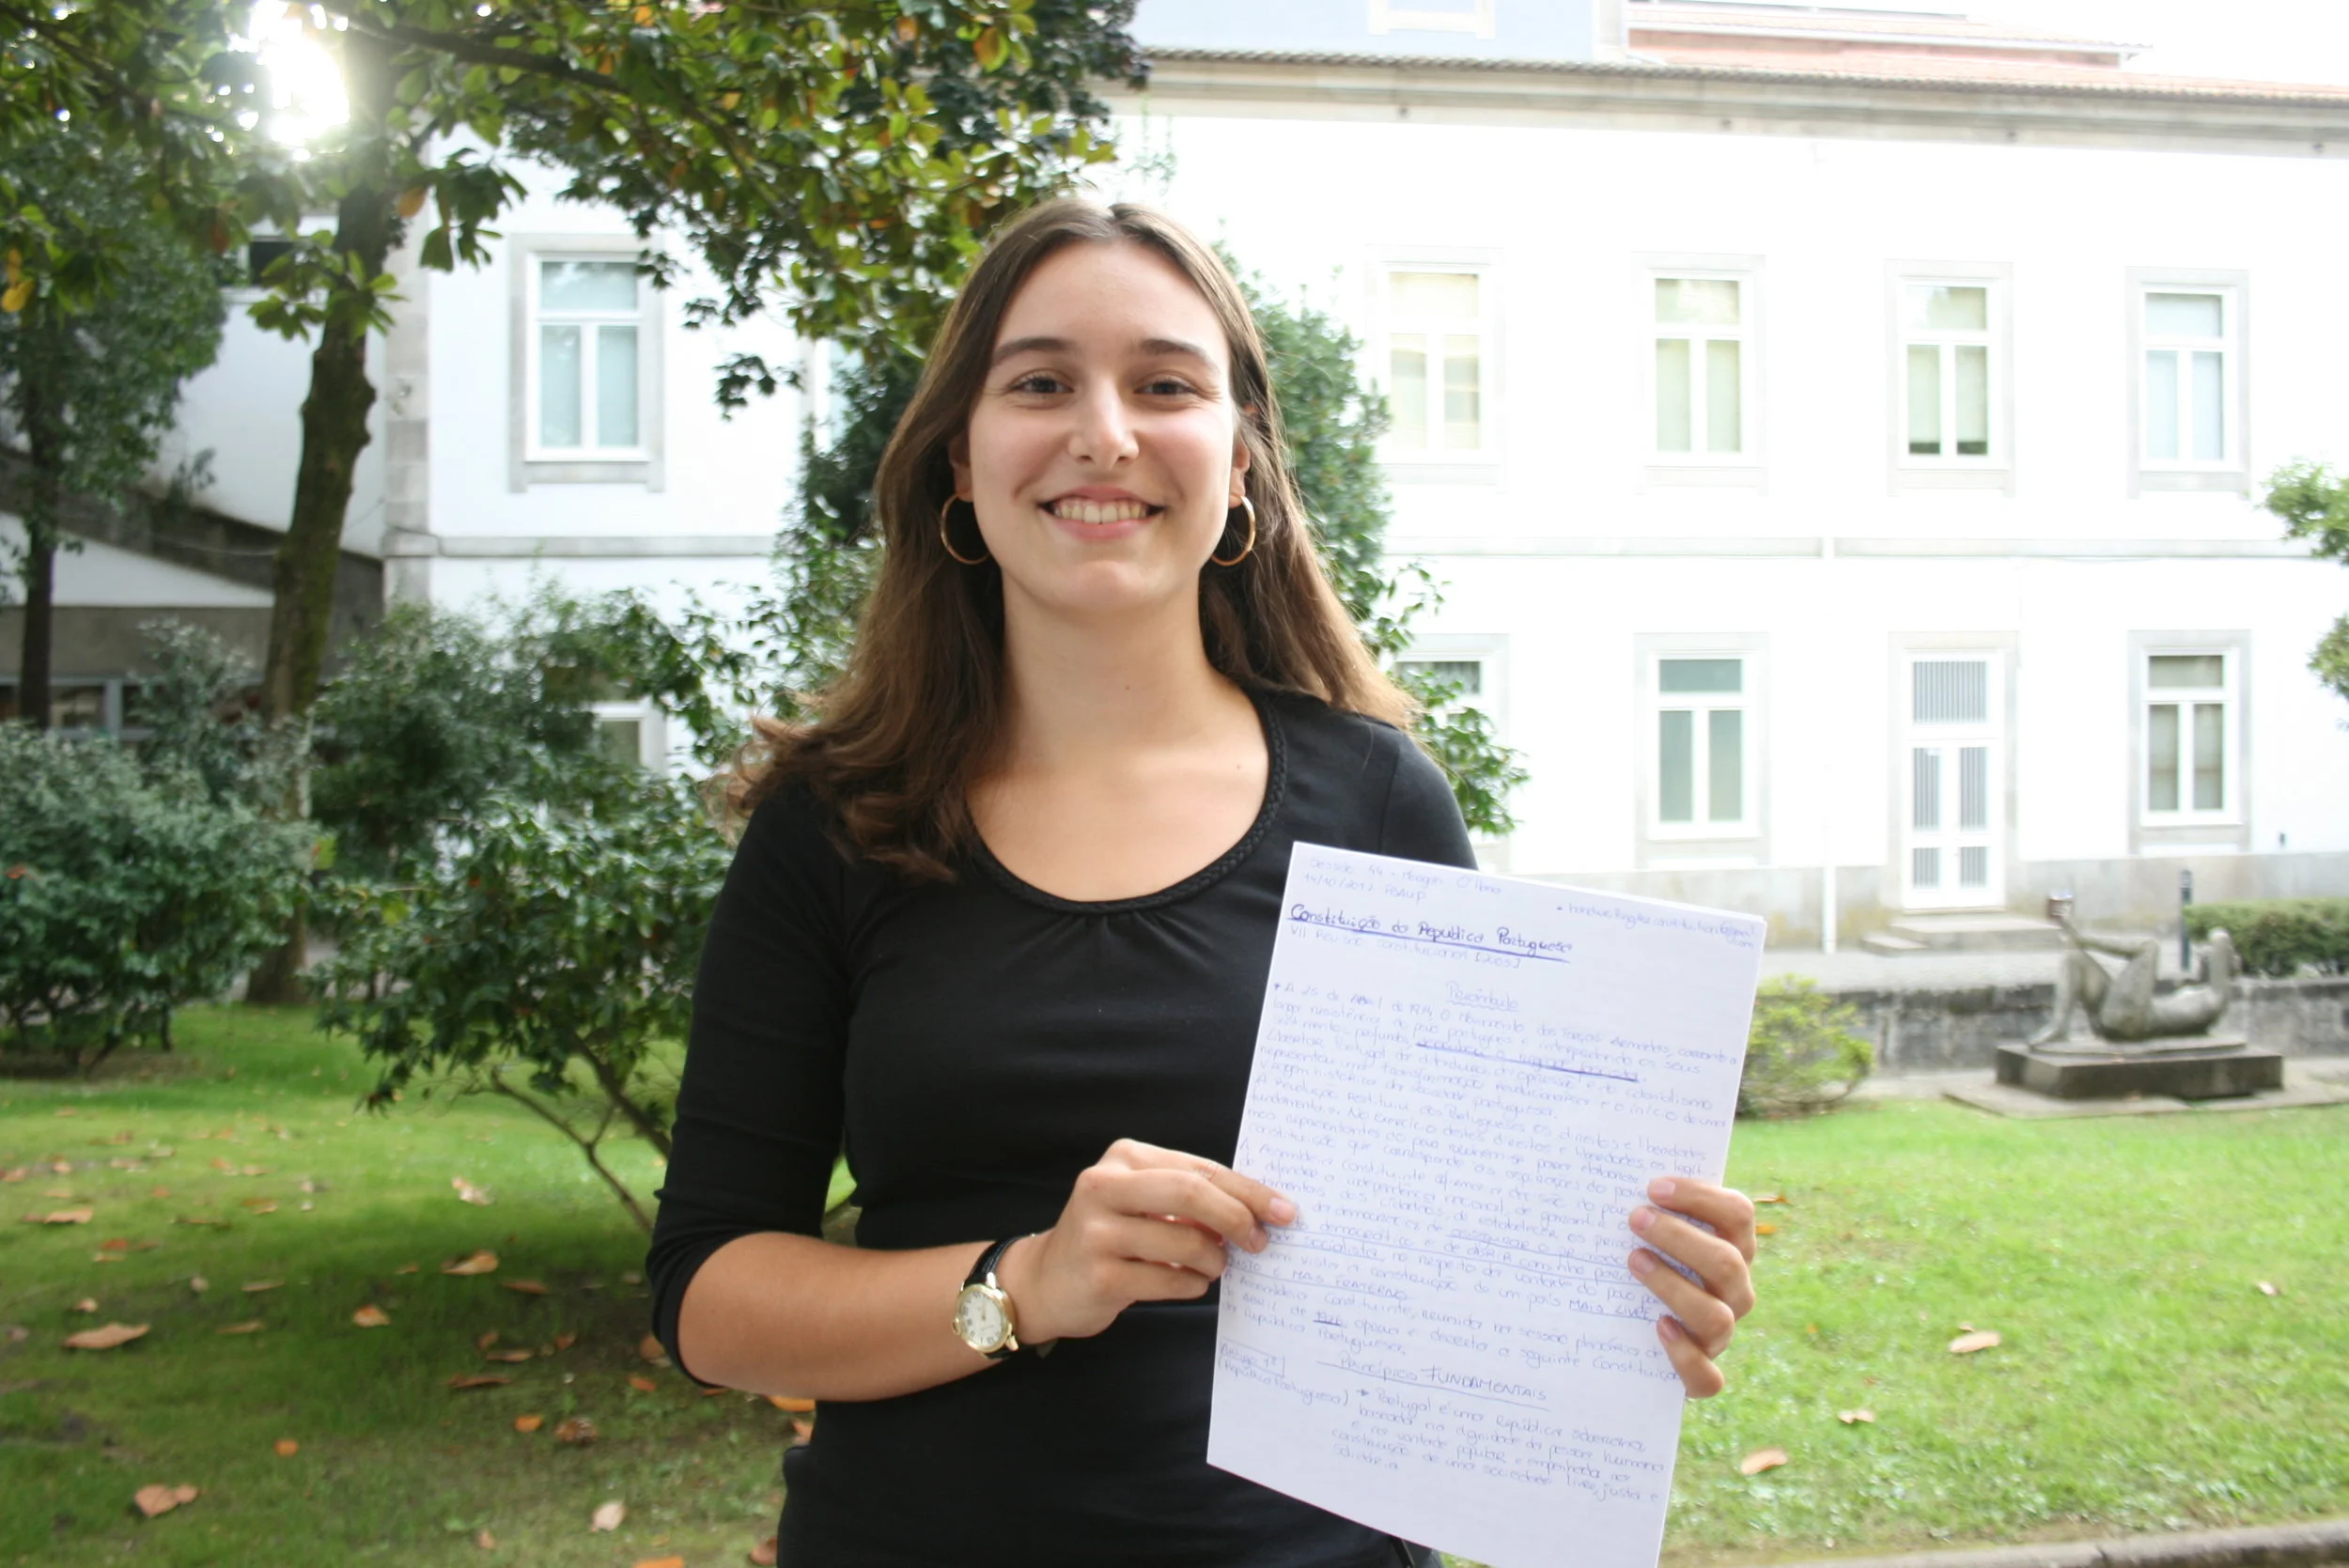 Sessão 44 - Morgan O'Hara
14/10/2017 FBAUP
• handwritingtheconstitution@gmail
.com
Constituição da República Portuguesa
VII Revisão constitucional [2005]
Preâmbulo
• A 25 de Abril de 1974, o Movimento das Forças Armadas, coroando a
longa resistência do povo português e interpretando os seus
sentimentos profundos, derrubou o regime fascista.
Libertar Portugal da ditadura, da opressão e do colonialismo
representou uma transformação revolucionária e o início de uma
viragem histórica da sociedade portuguesa.
A Revolução restituiu aos Portugueses os direitos e liberdades
fundamentais. No exercício destes direitos e liberdades, os legíti-
mos representantes do povo reúnem-se para elaborar
Constituição que corresponde às aspirações do país.
A Assembleia Constituinte afirma a decisão do povo
de defender a independência nacional, de garantir os
damentais dos cidadãos, de estabelecer os princípios
da democracia, de assegurar o primado
democrático e de abrir caminho para
socialista, no respeito da vontade do povo
em vista a construção de um país MAIS LIVRE,
JUSTO E MAIS FRATERNO.
Assembleia Constituinte, reunida na sessão plenária de
Abril de 1976, aprova e decreta a seguinte Constituição
da República Portuguesa.
PRINCÍPIOS FUNDAMENTAIS
Artigo 1º
(República Portuguesa) • Portugal é uma República soberana
baseada na dignidade da pessoa humana
e na vontade popular e empenhada na
construção de uma sociedade livre, justa e
solidária